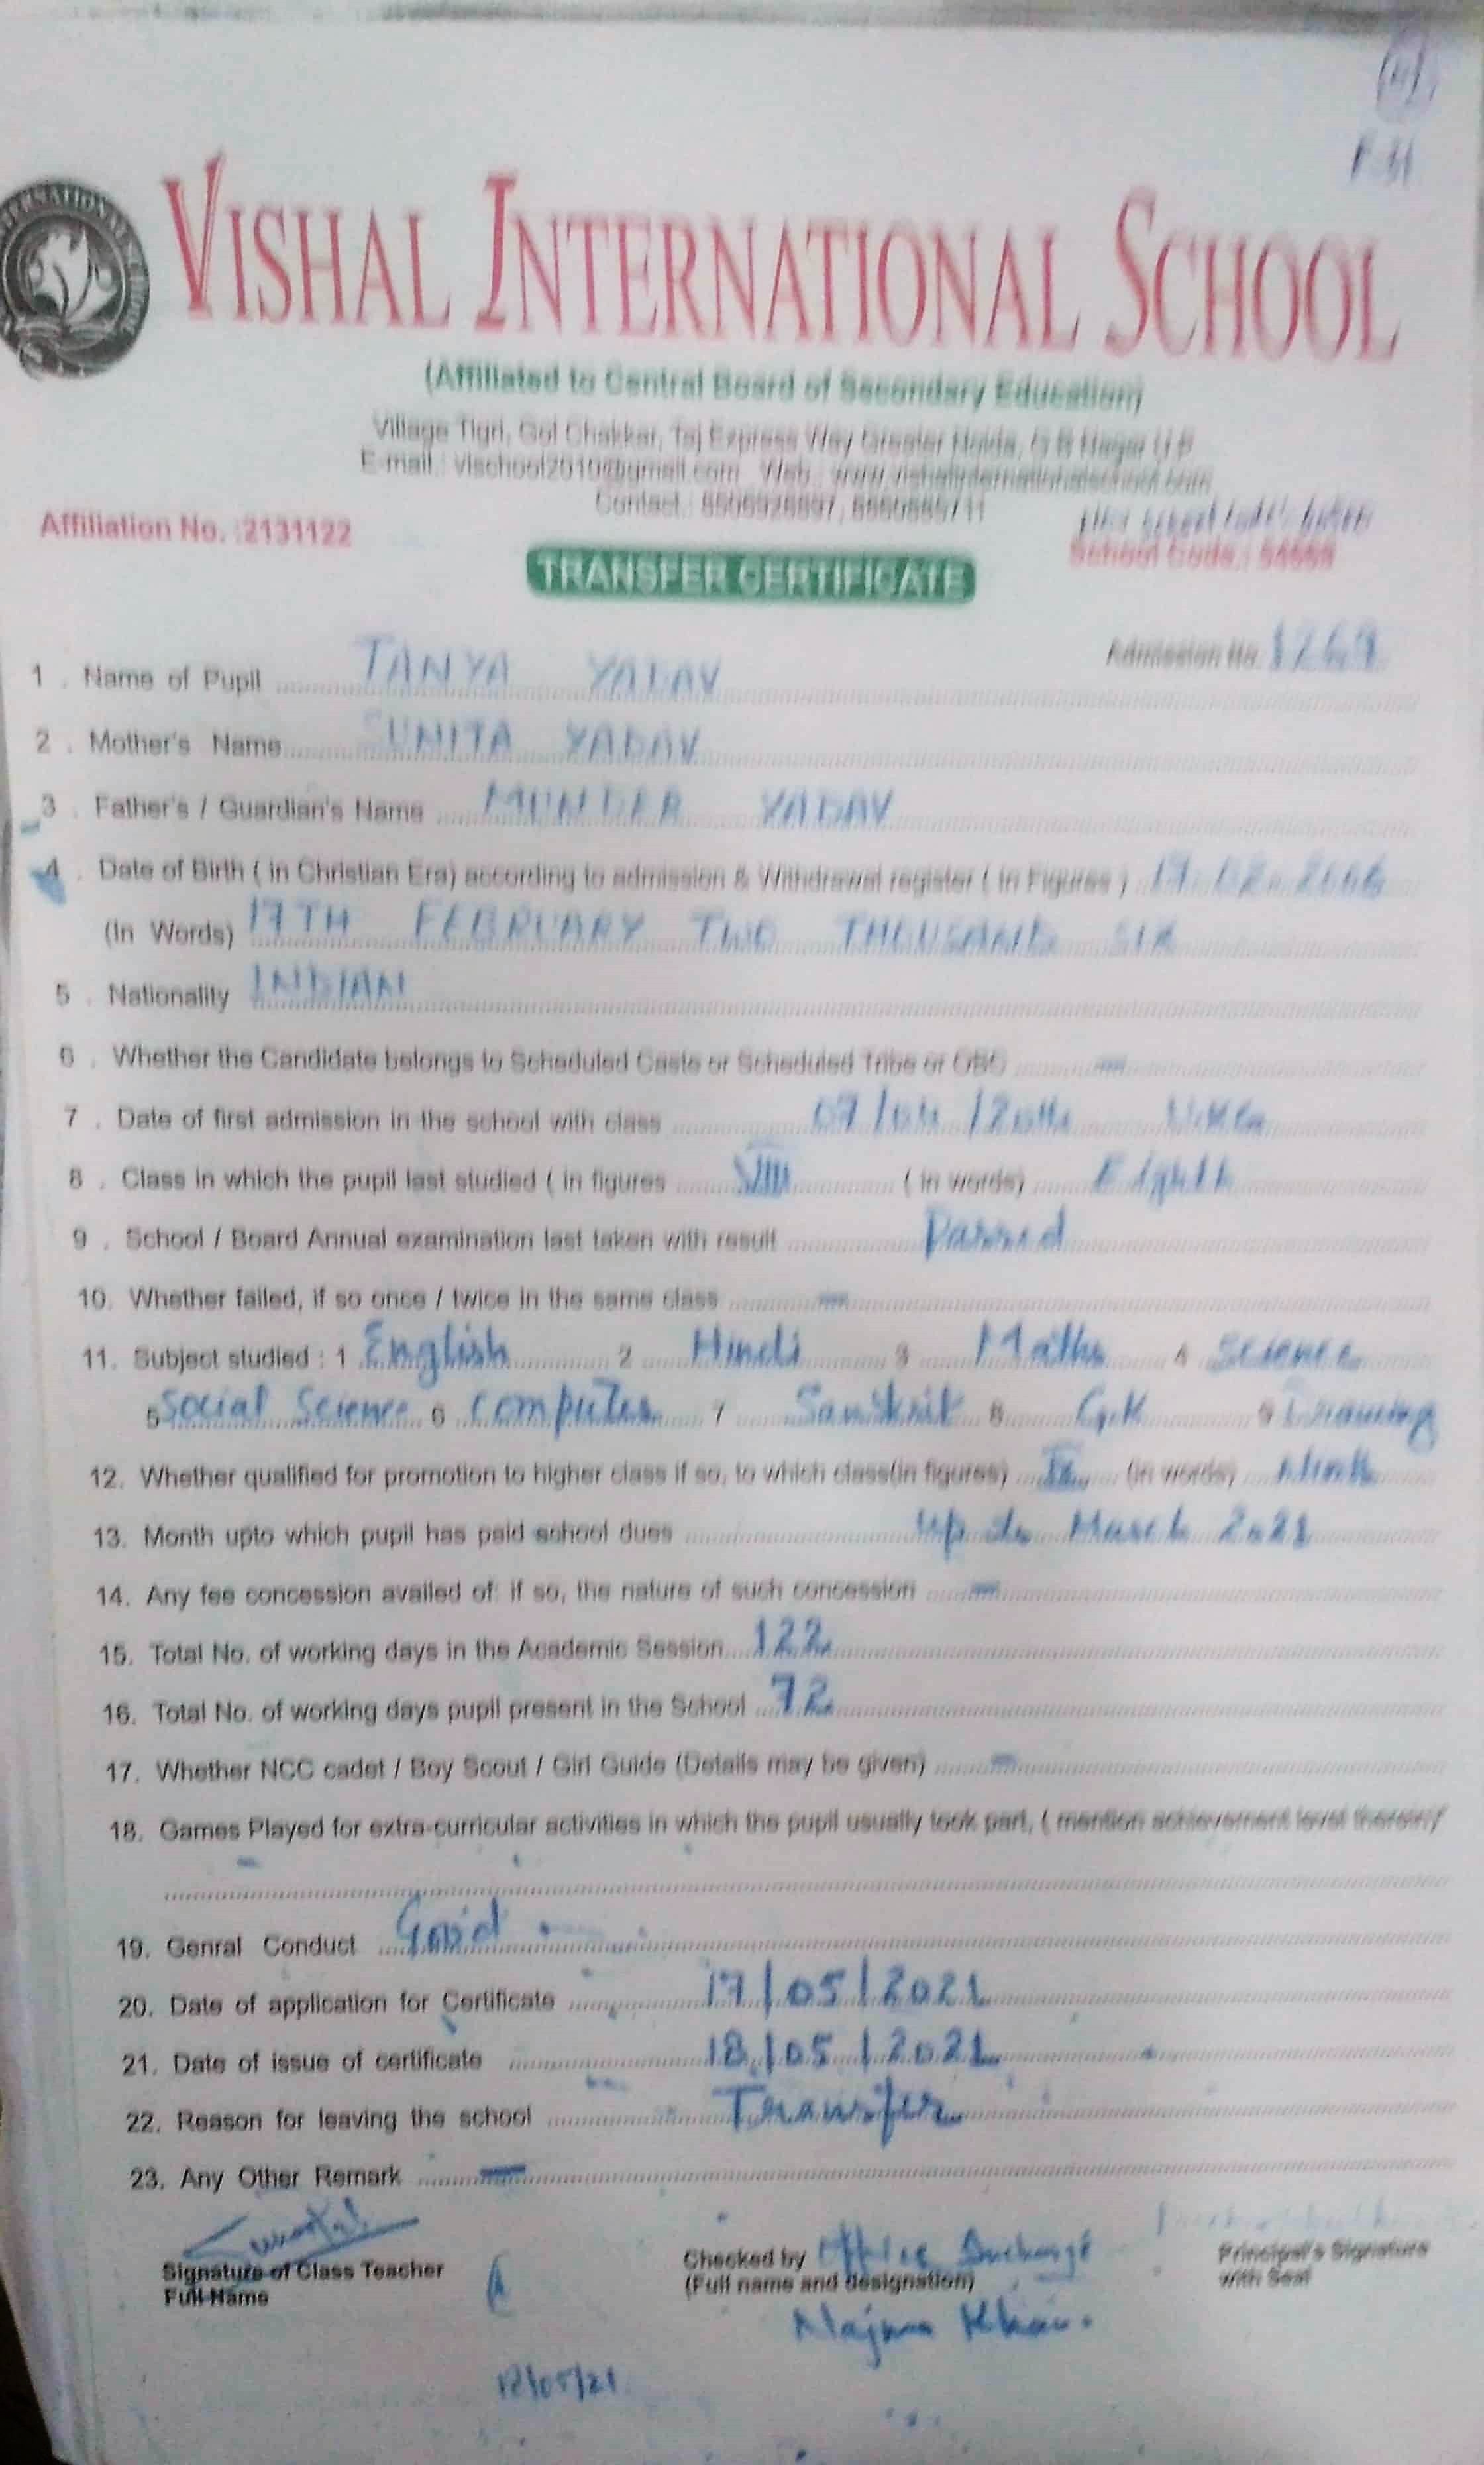 VISHAL INTERNATIONAL SCHOOL
(Affiliated to Central Board of Secondary Education)
Village Tigri, Gol Chakkar, Taj Express Way Greater Noida, G B Nagar U P
E-mail.: vischool2010@gmail.com Web.: www.vishalinternationalschool.com
Contact.:
Affiliation No. :2131122
School Code.:
TRANSFER CERTIFICATE
Admission No. 1269
1 . Name of Pupil TANYA YADAV
2 . Mother's Name SUNITA YADAV
3 . Father's / Guardian's Name YADAV
4 . Date of Birth ( in Christian Era) according to admission & Withdrawal register ( in Figures ) 17.02.2006
(In Words) 17TH FEBRUARY TWO THOUSAND SIX
5 . Nationality INDIAN
6 . Whether the Candidate belongs to Scheduled Caste or Scheduled Tribe or OBC –
7 . Date of first admission in the school with class
8 . Class in which the pupil last studied ( in figures VIII ( in words) Eighth
9 . School / Board Annual examination last taken with result Passed
10. Whether failed, if so once / twice in the same class –
11. Subject studied : 1 English 2 Hindi 3 Maths 4 Science
5 Social Science 6 Computer 7 Sanskrit 8 G.K 9 Drawing
12. Whether qualified for promotion to higher class if so, to which class(in figures) IX (in words) Ninth
13. Month upto which pupil has paid school dues Up to March 2021
14. Any fee concession availed of: if so, the nature of such concession –
15. Total No. of working days in the Academic Session 122
16. Total No. of working days pupil present in the School 72
17. Whether NCC cadet / Boy Scout / Girl Guide (Details may be given) –
18. Games Played for extra-curricular activities in which the pupil usually took part, ( mention achievement level therein)
–
19. Genral Conduct Good
20. Date of application for Certificate 17/05/2021
21. Date of issue of certificate 18/05/2021
22. Reason for leaving the school Transfer
23. Any Other Remark –
Signature of Class Teacher
Full Name
Checked by Office Incharge
(Full name and designation)
Khan.
Principal's Signature
with Seal
18/05/21